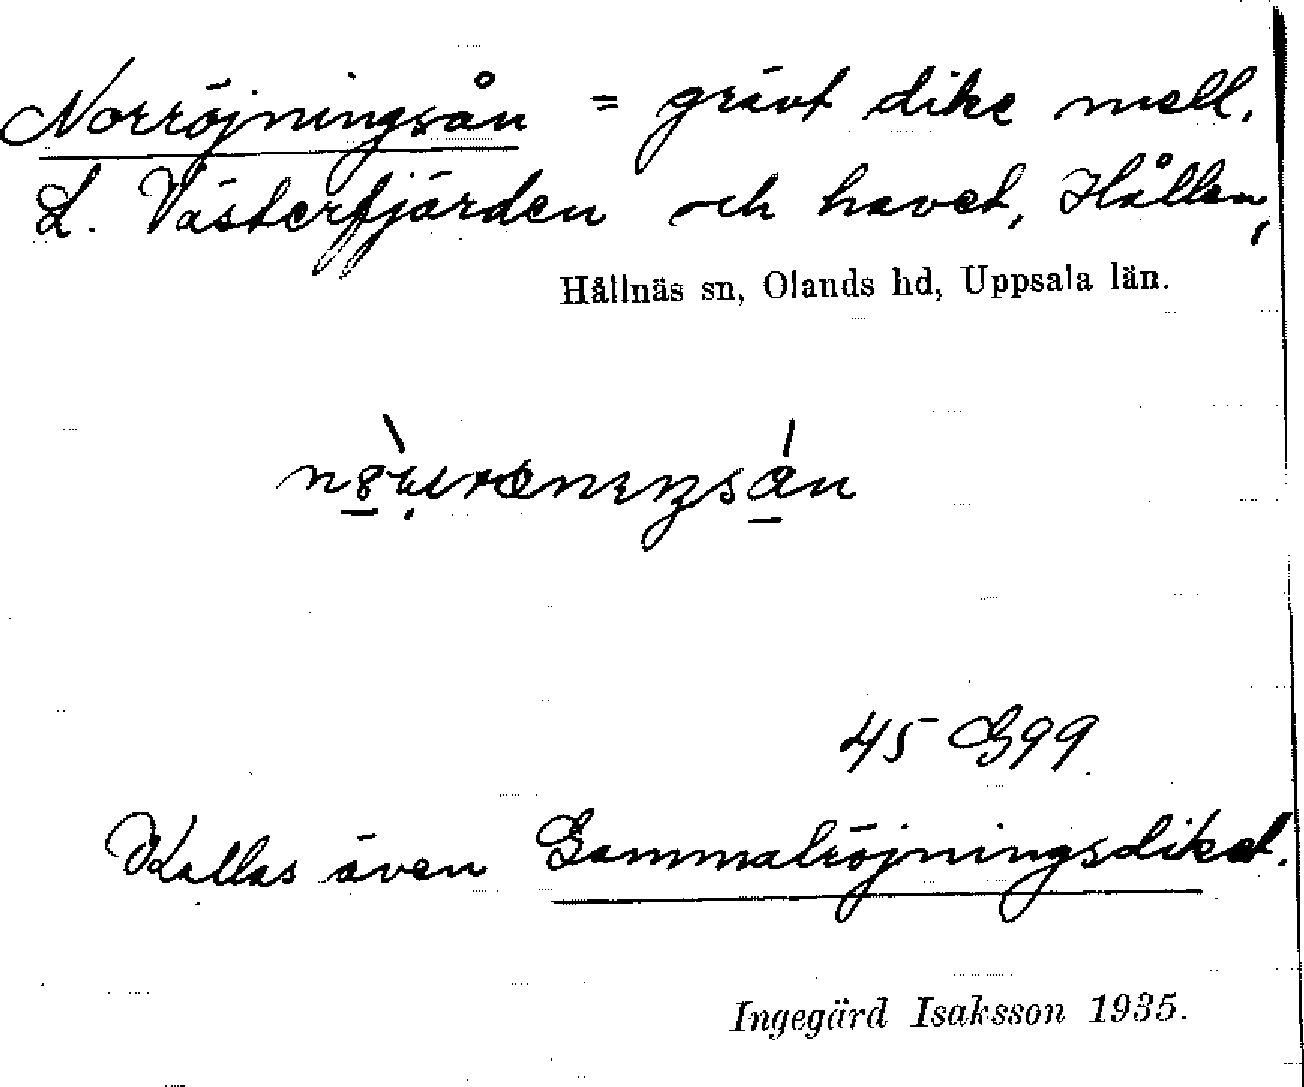 Norröjningsån = grävt dike mell.
L. Västerfjärden och havet, Hållen,
Hållnäs sn, Olands hd, Uppsala län.
45 G99
Kallas även Gammalröjningsdiket.
Ingegärd Isaksson 1935.